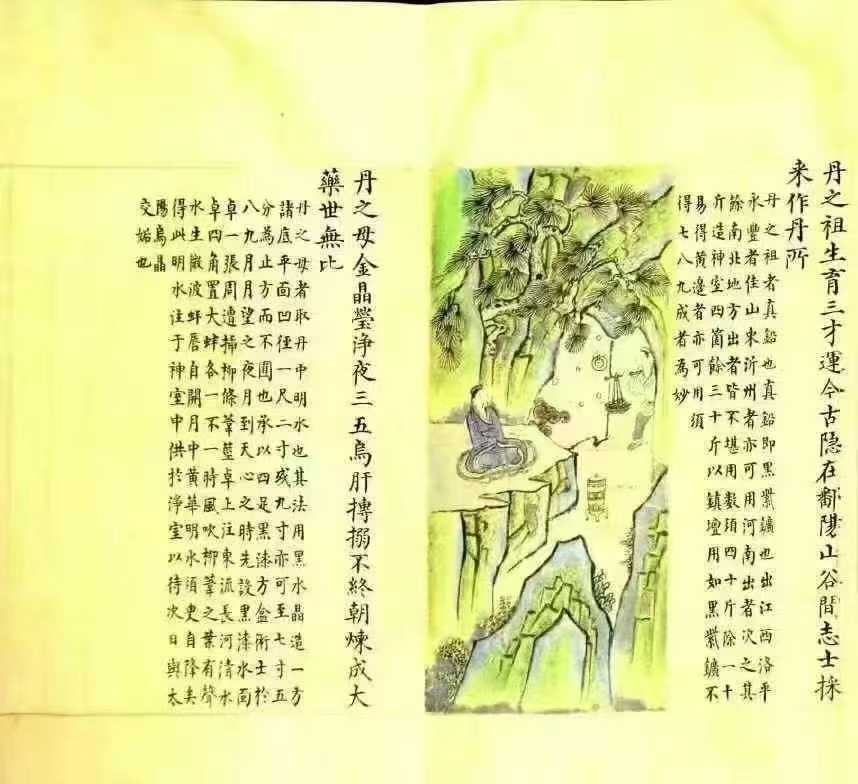 丹之祖生育三才運今古隐在鄱陽山谷間志士採
来作丹所
丹之祖者真鉛也真鉛即黑鱉鑛也出江西洛平
永豐者佳山東沂州者亦可用河南出者次之其
餘南北地方出者皆不堪用数須四十斤除一十
斤造神室四箇餘三十斤以鎮壇用如黑鱉鑛不
易得黄邊者亦可用須
得七八九成者為妙
丹之母金晶瑩浄夜三五烏肝摶搦不終朝煉成大
藥世無比
丹之母者取丹中明水也其法用黑水晶造一方
諸底平面凹径一尺二寸或九寸亦可至七寸五
分為止方而不圓也承以四足黑漆方盒術士於
八九月月望之夜月到天心之時先設黑漆水面
卓一張周遭掃柳條葦籃卓上注東流長河清水
卓四角置大蚌各一不一時風吹柳葦之葉有聲
水生微波蚌唇自開月中黄華明水須臾自降矣
得此明水注于神室中供於浄室以待次日與太
陽烏晶
交媾也